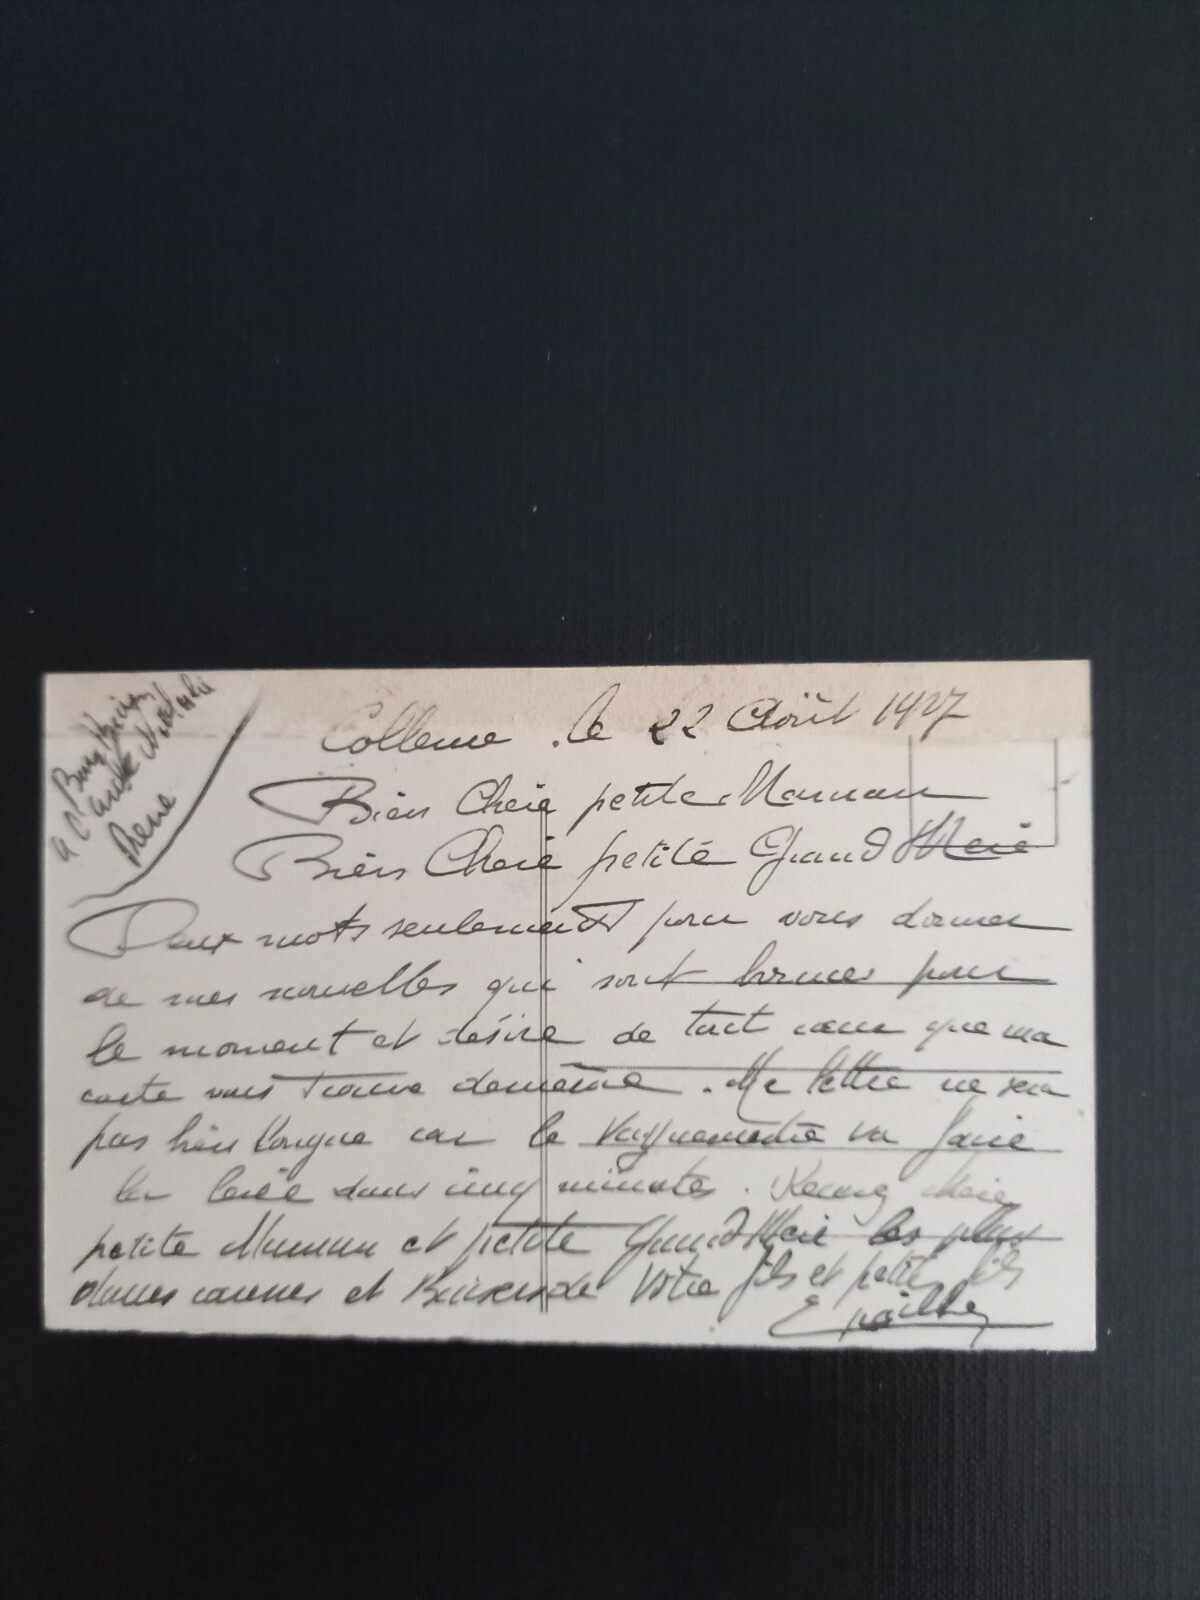 le 22 Août 1927
Bien Cheie petite Maman
Bien Cheie petite Grand Meie
Deux mots seulement pour vous donner
de mes nouvelles qui sont bonnes pour
le moment et désire de tout cœur que ma
carte vous trouve de même. Me lettre ne sera
pas bien longue car le Vaguemestre va faire
la levée dans cinq minutes. Meie
petite Maman et petite Grand Meie les plus
douces caresses et Baisers de Votre fils et petits fils